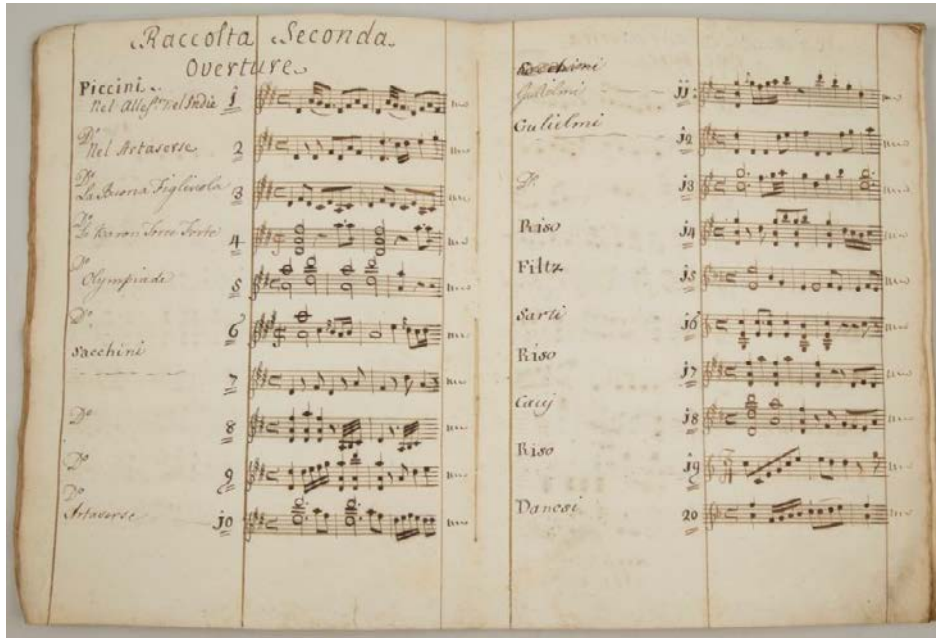 Raccolta Seconda
Overture
Piccini
Nel Aless.º Nel Indie 1
Dº
Nel Artaserse 2
Dº
La Buona Figliuola 3
Dº
Torre Forte 4
Dº
Olympiade 5
Dº
6
Sacchini
7
Dº
8
Dº
9
Dº
Artaserse j0
Gulielmi jj
Gulielmi
j2
Dº
j3
Riso j4
Filtz j5
Sarti j6
Riso
j7
j8
Riso
j9
20